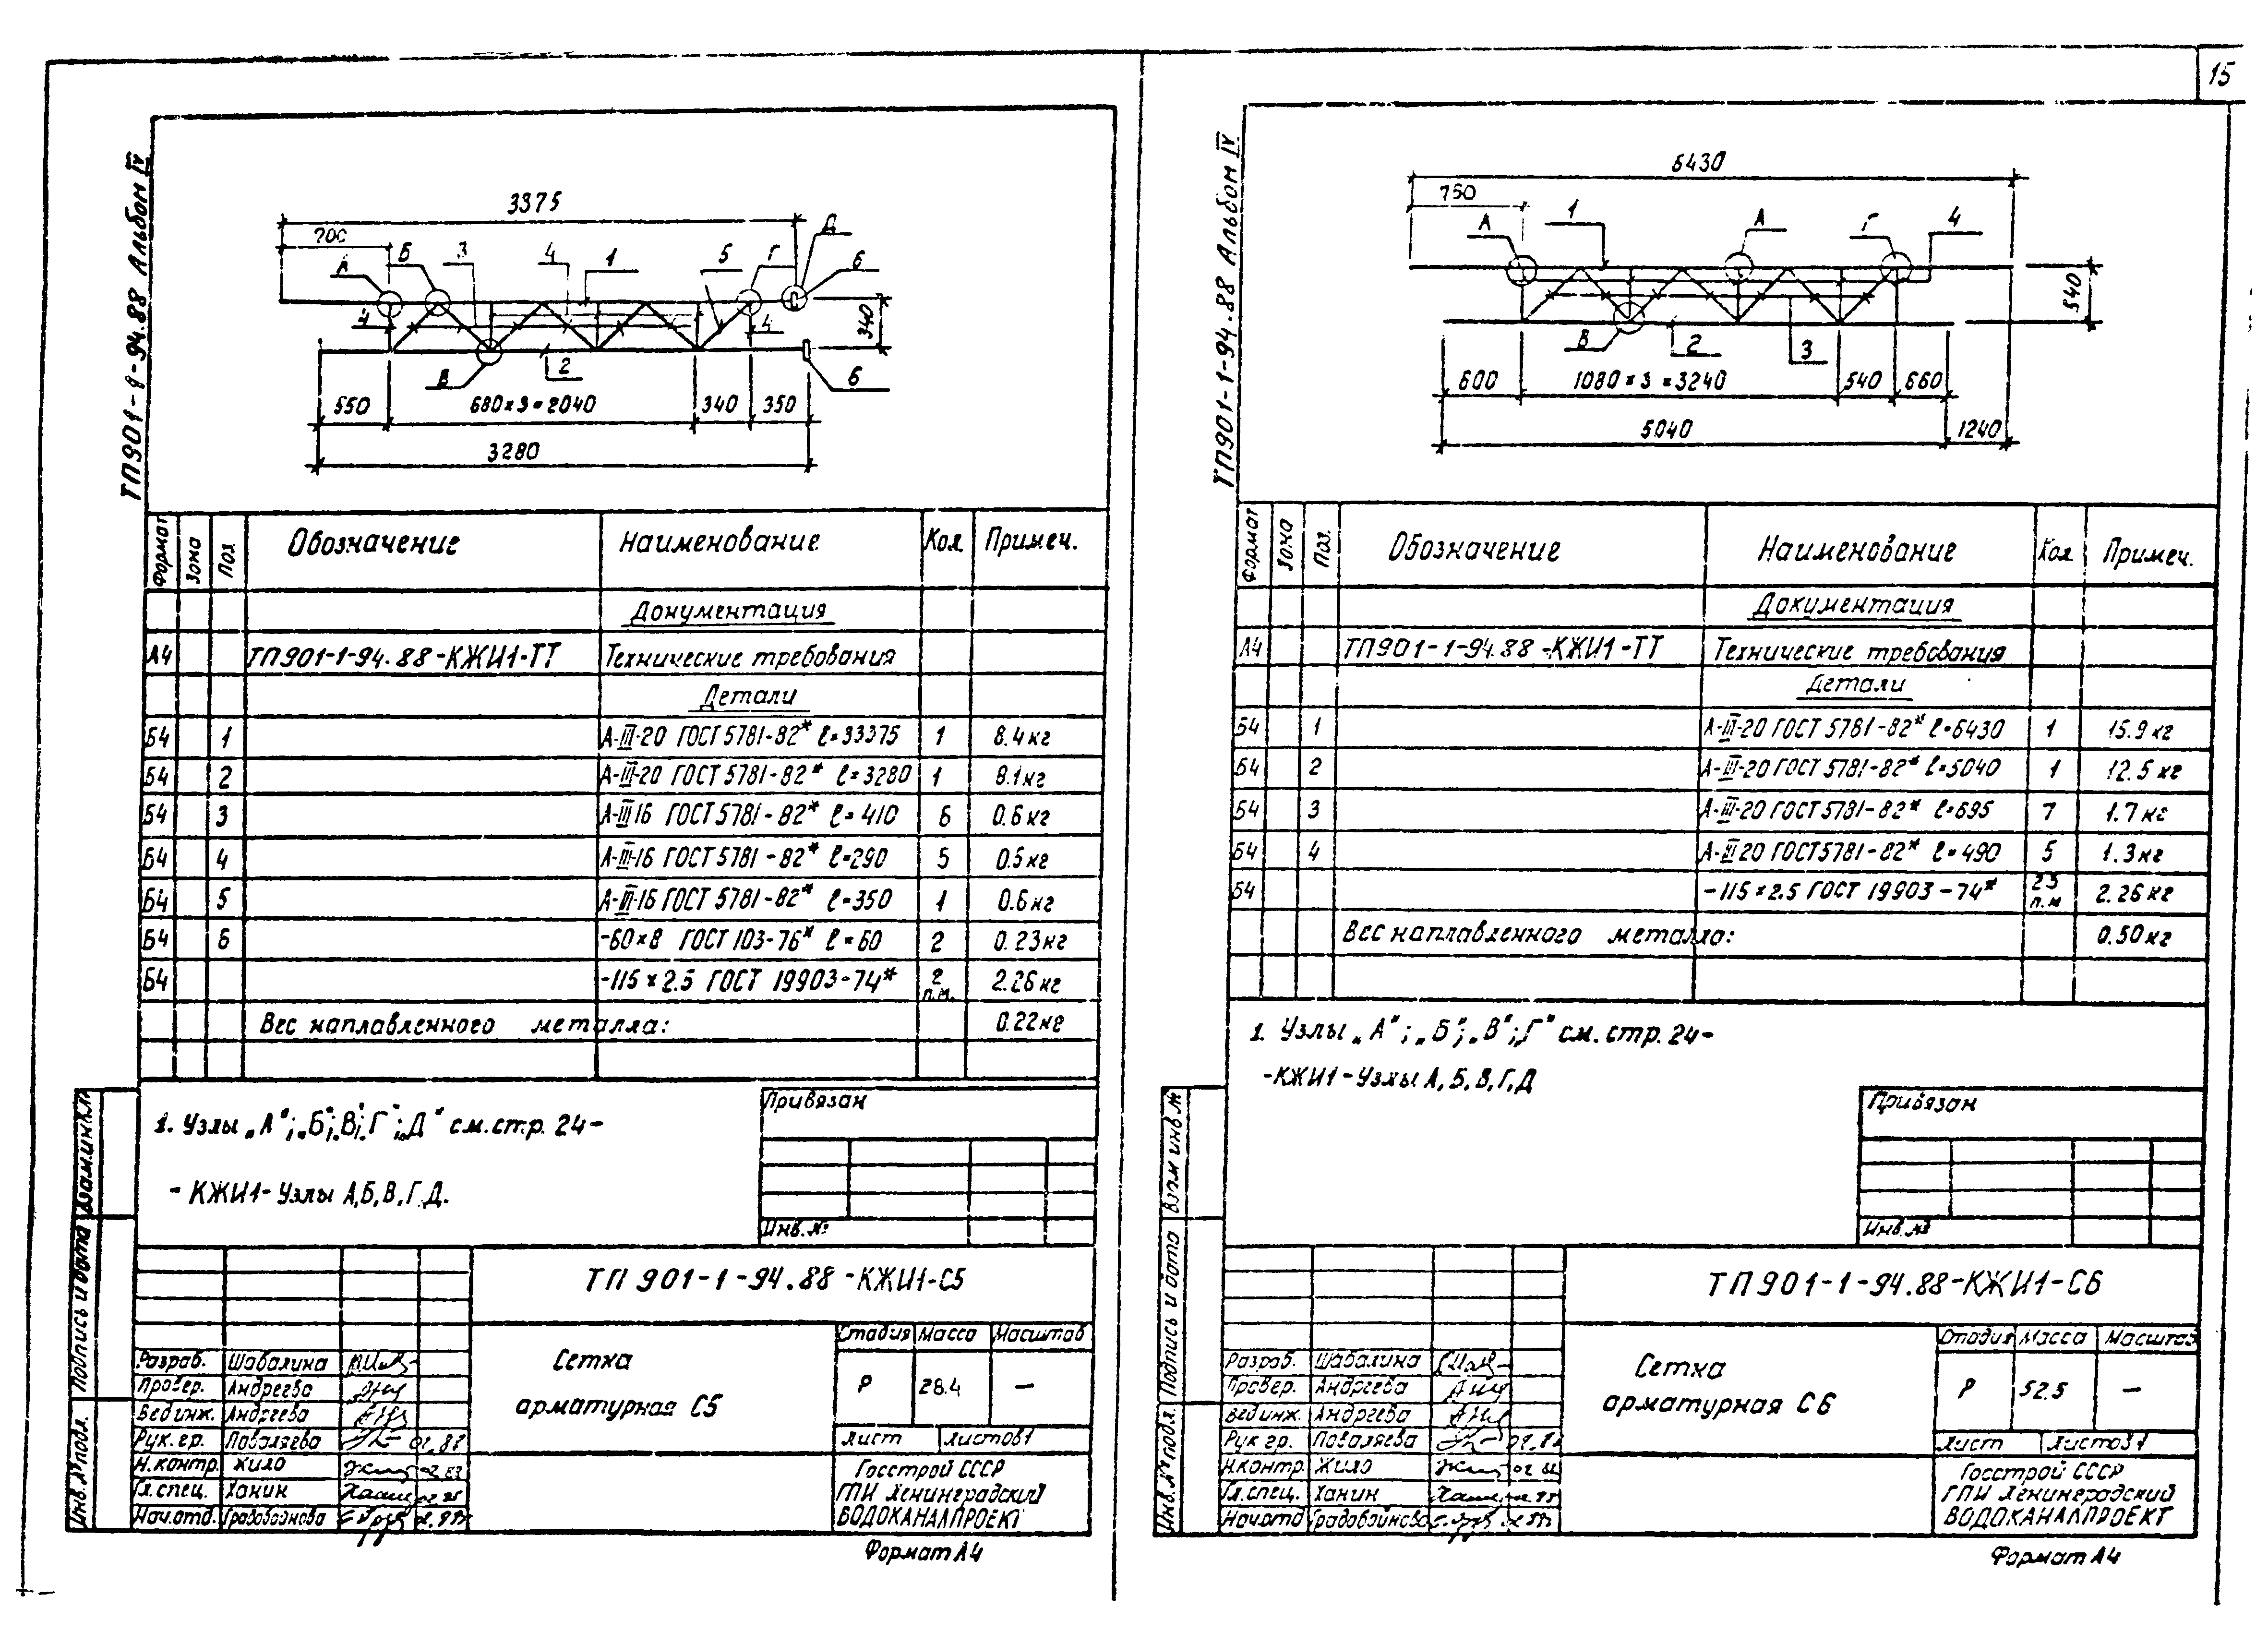 15
ТП901-1-94.88 Альбом IV
3375
700
А
Б
3
4
1
5
Г
Д
6
4
4
340
В
2
6
550
680×3=2040
340
350
3280
Формат
Зона
Поз.
Обозначение
Наименование
Кол.
Примеч.
Документация
А4 ТП901-1-94.88-КЖИ1-ТТ Технические требования
Детали
Б4 1 А-III-20 ГОСТ 5781-82* ℓ=33375 1 8.4кг
Б4 2 А-III-20 ГОСТ 5781-82* ℓ=3280 1 8.1кг
Б4 3 А-III16 ГОСТ 5781-82* ℓ=410 6 0.6кг
Б4 4 А-III-16 ГОСТ 5781-82* ℓ=290 5 0.5кг
Б4 5 А-III-16 ГОСТ 5781-82* ℓ=350 1 0.6кг
Б4 6 -60×8 ГОСТ 103-76* ℓ=60 2 0.23кг
Б4 -115×2.5 ГОСТ 19903-74* 2 п.м. 2.26кг
Вес наплавленного металла: 0.22кг
1. Узлы „А"; „Б"; „В"; „Г"; „Д" см.стр. 24-
-КЖИ1-Узлы А,Б,В,Г,Д.
Привязан
Инв.№
ТП 901-1-94.88-КЖИ1-С5
Сетка
арматурная С5
Стадия Масса Масштаб
Р 28.4 —
Лист Листов1
Госстрой СССР
ГПИ Ленинградский
ВОДОКАНАЛПРОЕКТ
Разраб. Шабалина
Провер. Андреева
Вед инж. Андреева
Рук.гр. Поваляева
Н.контр. Жило
Гл.спец. Ханин
Нач.отд. Градобойнова
Инв.№подл. Подпись и дата Взам.инв.№
Формат А4
ТП901-1-94.88 Альбом IV
6430
750
А
1
А
Г
4
540
В
2
3
600
1080×3=3240
540
660
5040
1240
Формат
Зона
Поз.
Обозначение
Наименование
Кол
Примеч.
Документация
А4 ТП901-1-94.88-КЖИ1-ТТ Технические требования
Детали
Б4 1 А-III-20 ГОСТ 5781-82* ℓ=6430 1 15.9кг
Б4 2 А-III-20 ГОСТ 5781-82* ℓ=5040 1 12.5кг
Б4 3 А-III-20 ГОСТ 5781-82* ℓ=695 7 1.7кг
Б4 4 А-III20 ГОСТ5781-82* ℓ=490 5 1.3кг
Б4 -115×2.5 ГОСТ 19903-74* п.м 2.26кг
Вес наплавленного металла: 0.50кг
1. Узлы „А"; „Б"; „В"; „Г" см.стр.24-
-КЖИ1-Узлы А,Б,В,Г,Д
Привязан
Инв.№
ТП901-1-94.88-КЖИ1-С6
Сетка
арматурная С6
Стадия Масса Масштаб
Р 52.5 —
Лист Листов1
Госстрой СССР
ГПИ Ленинградский
ВОДОКАНАЛПРОЕКТ
Разраб. Шабалина
Провер. Андреева
Вед инж. Андреева
Рук гр. Поваляева
Н.контр. Жило
Гл.спец. Ханин
Нач.отд Градобойнова
Инв.№подл. Подпись и дата Взам инв.№
Формат А4